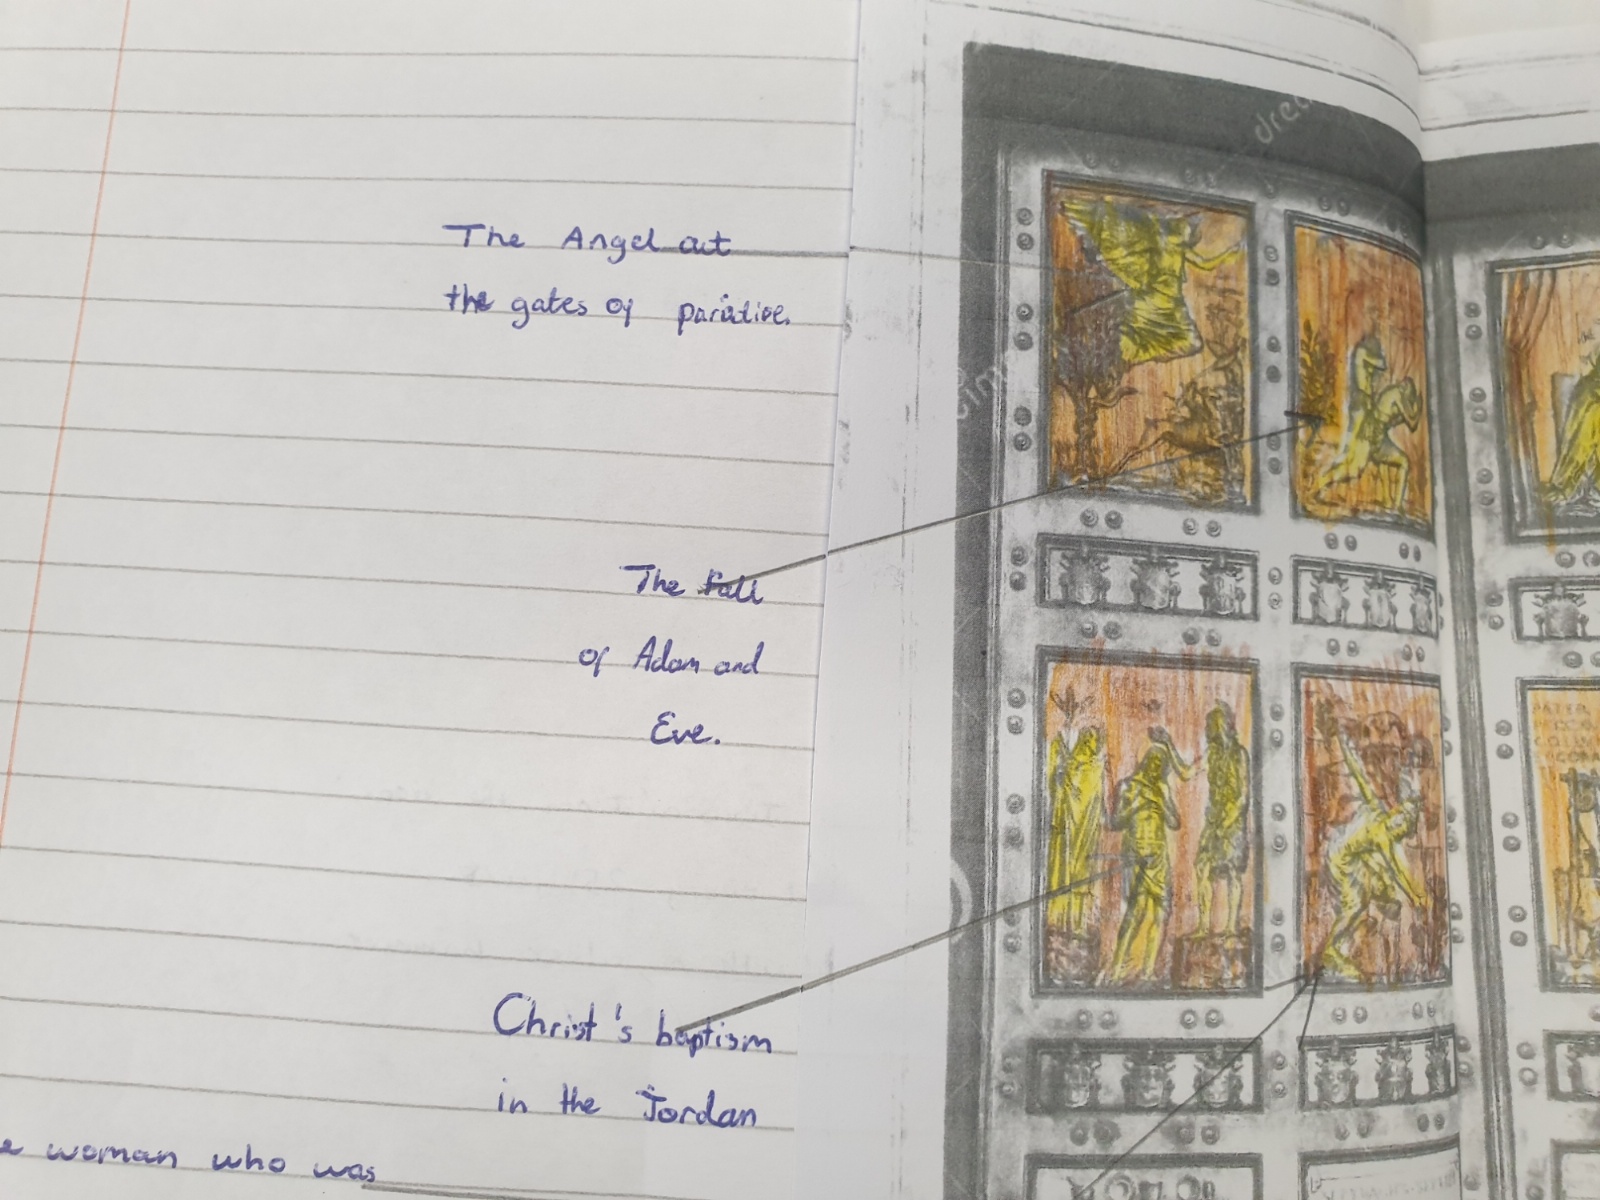 The Angel at
the gates of paradise.
The Fall
of Adam and
Eve.
Christ's baptism
in the Jordan
woman who was